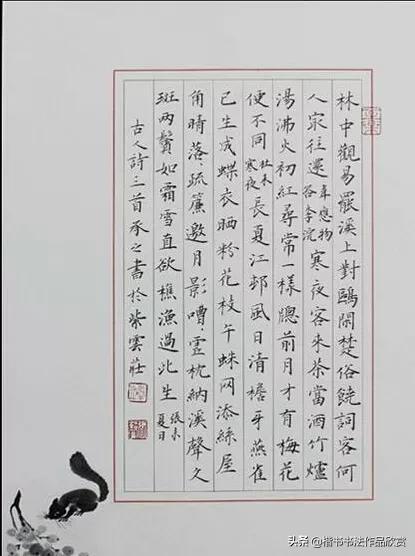 林中觀易罷溪上對鷗閑楚俗饒詞客何
人最往還 韋應物答李浣 寒夜客來茶當酒竹爐
湯沸火初紅尋常一樣牕前月才有梅花
便不同 杜耒寒夜 長夏江邨風日清檐牙燕雀
已生成蝶衣晒粉花枝午蛛网添絲屋
角晴落々疏簾邀月影嘈々虛枕納溪聲久
斑兩鬢如霜雪直欲樵漁過此生 張耒夏日
古人詩三首承之書於紫雲莊
头条 @楷书书法作品欣赏